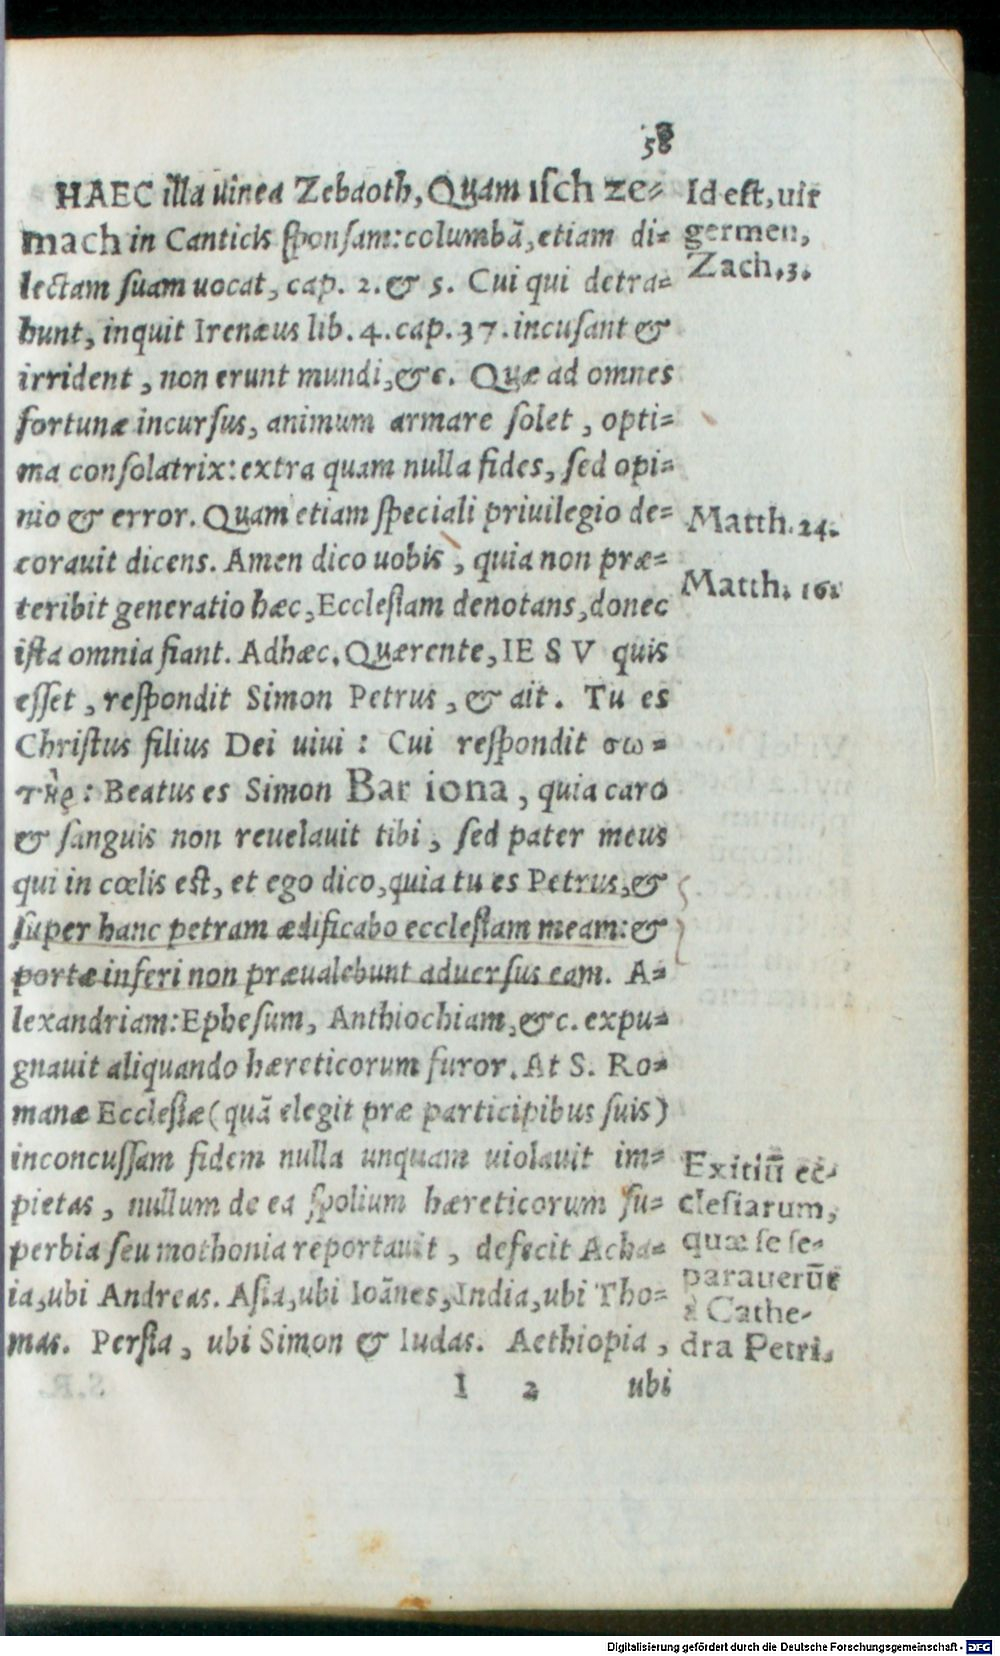 58
HAEC illa uinea Zebaoth, Quam iſch ze-
mach in Canticis ſponſam: columbā, etiam di-
lectam ſuam uocat, cap. 2. & 5. Cui qui detra-
hunt, inquit Irenæus lib. 4. cap. 37. incuſant &
irrident, non erunt mundi, &c. Quæ ad omnes
fortunæ incurſus, animum armare ſolet, opti-
ma conſolatrix: extra quam nulla fides, ſed opi-
nio & error. Quam etiam ſpeciali priuilegio de-
corauit dicens. Amen dico uobis, quia non præ-
teribit generatio hæc, Eccleſiam denotans, donec
iſta omnia fiant. Adhæc. Quærente, IESV quis
eſſet, reſpondit Simon Petrus, & ait. Tu es
Chriſtus filius Dei uiui: Cui reſpondit σω-
τὴρ: Beatus es Simon Bar iona, quia caro
& ſanguis non reuelauit tibi, ſed pater meus
qui in cœlis eſt, et ego dico, quia tu es Petrus, &
ſuper hanc petram ædificabo eccleſiam meam: &
portæ inferi non præualebunt aduerſus eam. A-
lexandriam: Epheſum, Anthiochiam, &c. expu-
gnauit aliquando hæreticorum furor. At S. Ro-
manæ Eccleſiæ (quā elegit præ participibus ſuis)
inconcuſſam fidem nulla unquam uiolauit im-
pietas, nullum de ea ſpolium hæreticorum ſu-
perbia ſeu mothonia reportauit, defecit Acha-
ia, ubi Andreas. Aſia, ubi Ioānes, India, ubi Tho-
mas. Perſia, ubi Simon & Iudas. Aethiopia,
I 2 ubi
Id eſt, uir
germen,
Zach. 3.
Matth. 24.
Matth. 16.
Exitiū ec-
cleſiarum,
quæ ſe ſe-
parauerūt
à Cathe-
dra Petri.
Digitalisierung gefördert durch die Deutsche Forschungsgemeinschaft - DFG